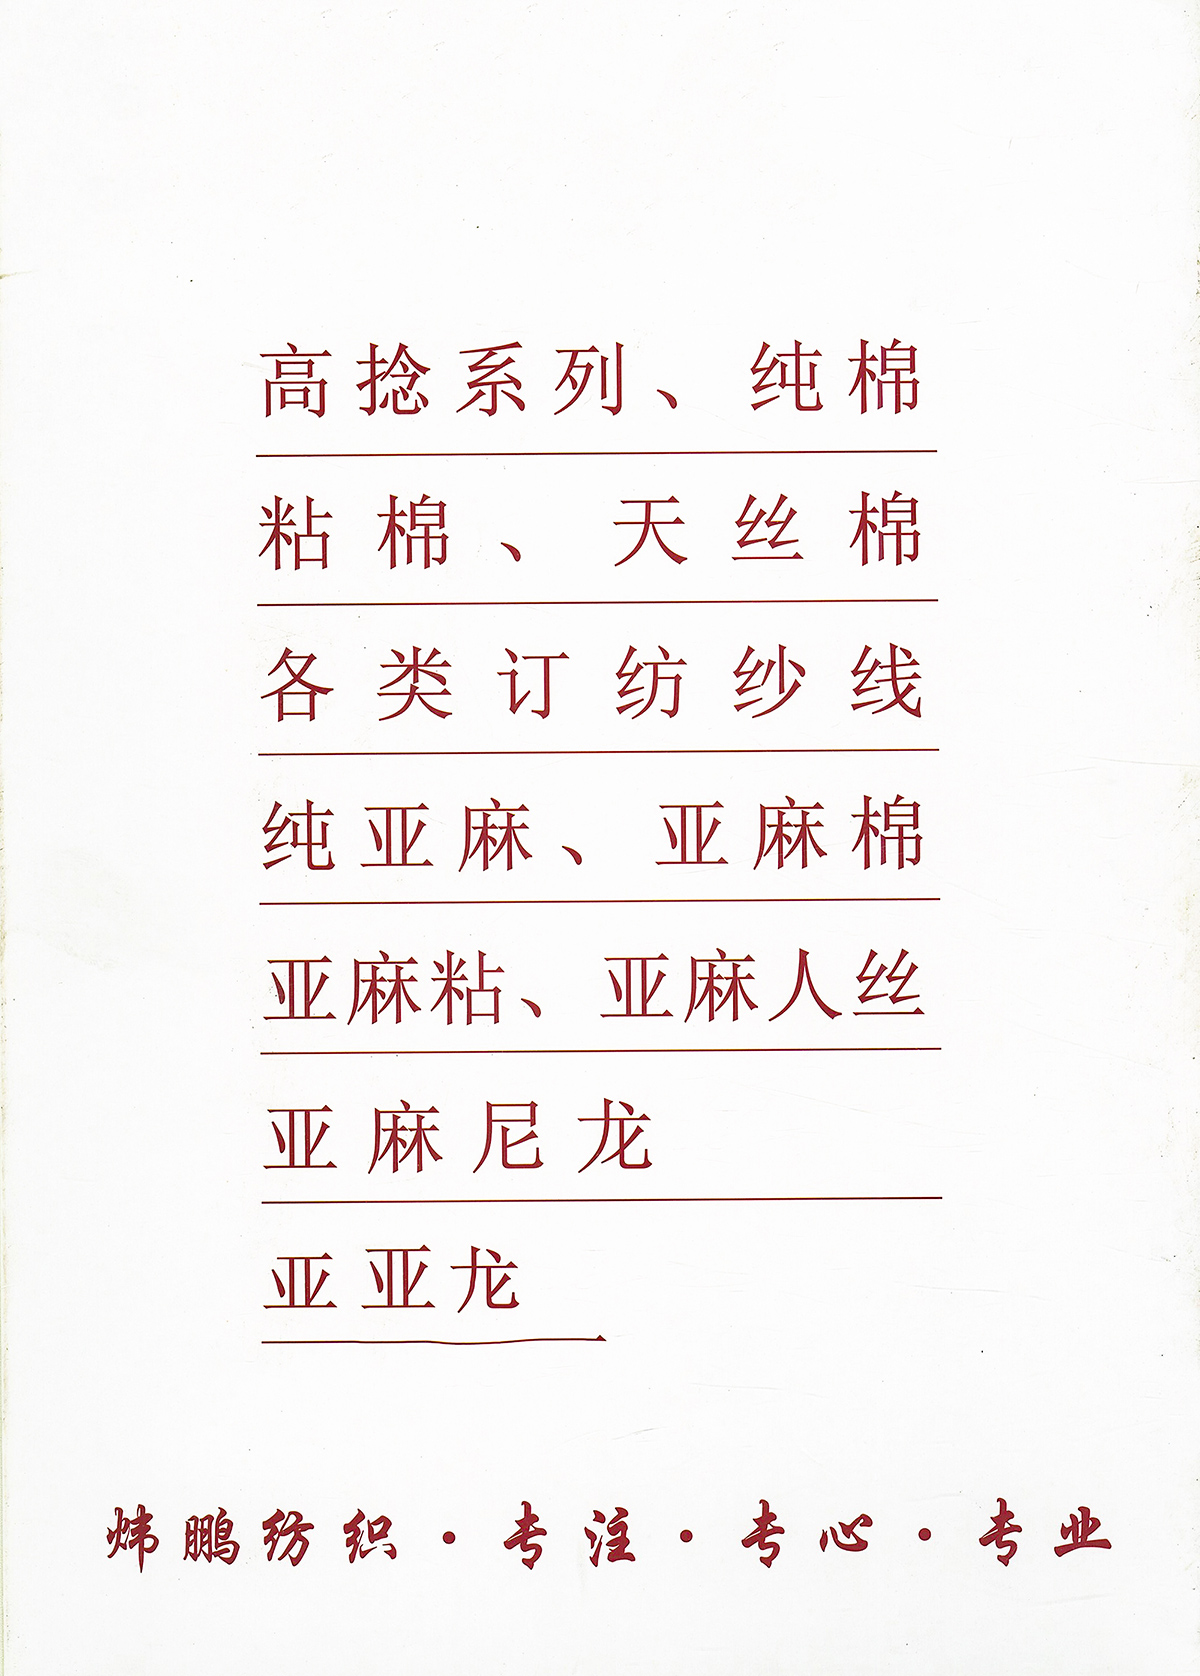 高捻系列、纯棉
粘棉、天丝棉
各类订纺纱线
纯亚麻、亚麻棉
亚麻粘、亚麻人丝
亚麻尼龙
亚亚龙
炜鹏纺织·专注·专心·专业